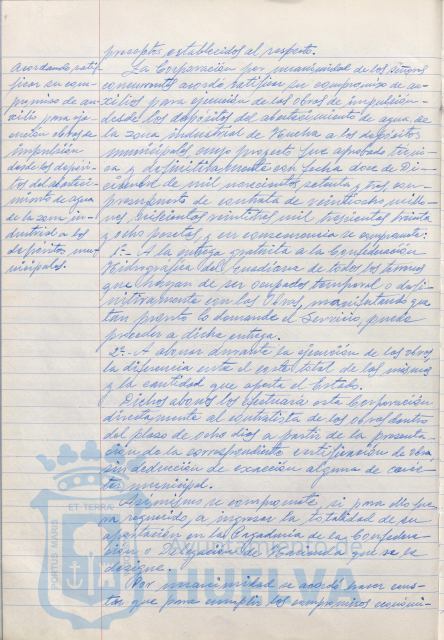 preceptos establecidos al respecto.
Acordando rati-
ficar su com-
promiso de au-
xilios para eje-
cución obras de
impulsión
desde los depósi-
tos del abasteci-
miento de agua
de la zona in-
dustrial a los
depósitos mu-
nicipales.
La Corporación por unanimidad de los señores
concurrentes acordó ratificar su compromiso de au-
xilios para ejecución de las obras de impulsión
desde los depósitos del abastecimiento de agua de
la zona industrial de Huelva a los depósitos
municipales cuyo proyecto fue aprobado técnica
y definitivamente con fecha doce de Di-
ciembre de mil novecientos setenta y tres, con
presupuesto de contrata de veintiocho millo-
nes, seiscientas veintitres mil trescientas treinta
y ocho pesetas, y en consecuencia se compromete:
1º.- A la entrega gratuita a la Confederación
Hidrográfica del Guadiana de todos los terrenos
que hayan de ser ocupados temporal o defi-
nitivamente con las obras, manifestando que
tan pronto lo demande el Servicio, puede
proceder a dicha entrega.
2º.- A abonar durante la ejecución de las obras,
la diferencia entre el coste total de las mismas
y la cantidad que aporta el Estado.
Dichos abonos los efectuará esta Corporación
directamente al contratista de las obras dentro
del plazo de ocho días a partir de la presenta-
ción de la correspondiente certificación de obra,
sin deducción de exacción alguna de carác-
ter municipal.
Asimismo se compromete, si para ello fue-
ra requerido, a ingresar la totalidad de su
aportación en la Pagaduría de la Confedera-
ción o Delegación de Hacienda que se le
designe.
Por unanimidad se acordó hacer cons-
tar que para cumplir los compromisos económi-
PORTUS MARIS
ET TERRAE
HUELVA